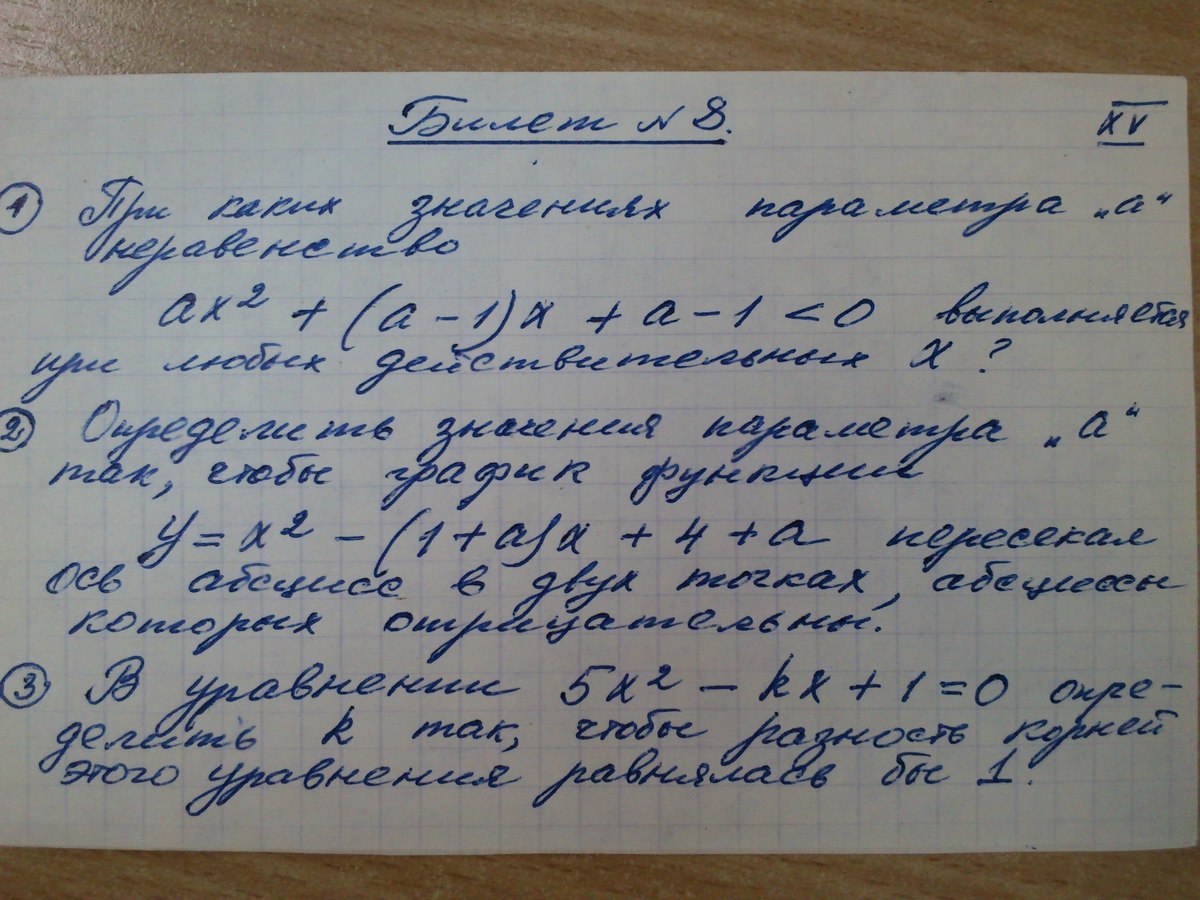 Билет № 8.
XV
1 При каких значениях параметра „а“
неравенство
ax² + (a - 1)x + a - 1 < 0 выполняется
при любых действительных x ?
2 Определить значения параметра „а“
так, чтобы график функции
y = x² - (1 + a)x + 4 + a пересекал
ось абсцисс в двух точках, абсциссы
которых отрицательны.
3 В уравнении 5x² - kx + 1 = 0 опре-
делить k так, чтобы разность корней
этого уравнения равнялась бы 1.